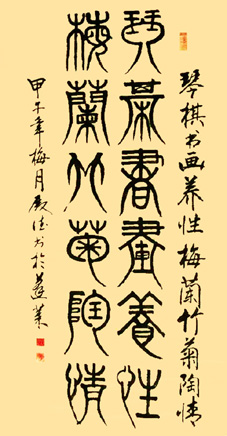 琴棋书画养性梅蘭竹菊陶情
琴棊書畫養性
梅蘭竹菊陶情
甲午年梅月书於